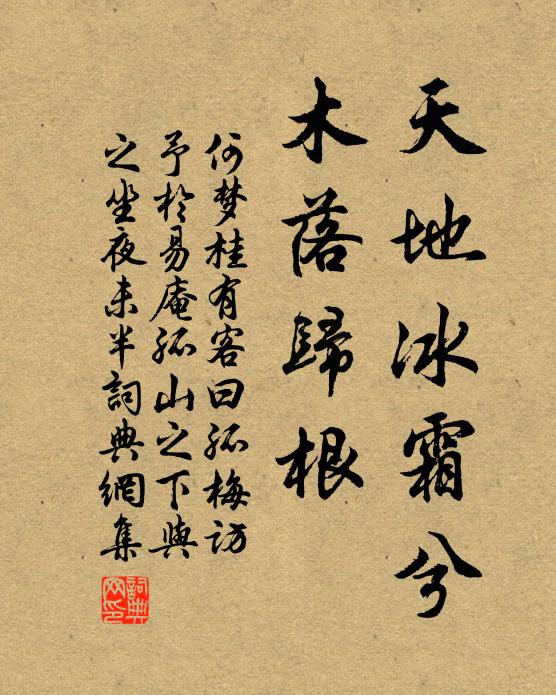 天地冰霜兮
木落歸根
何梦桂有客曰孤梅访
予於易庵孤山之下與
之坐夜未半詞典網集
詞典
网印